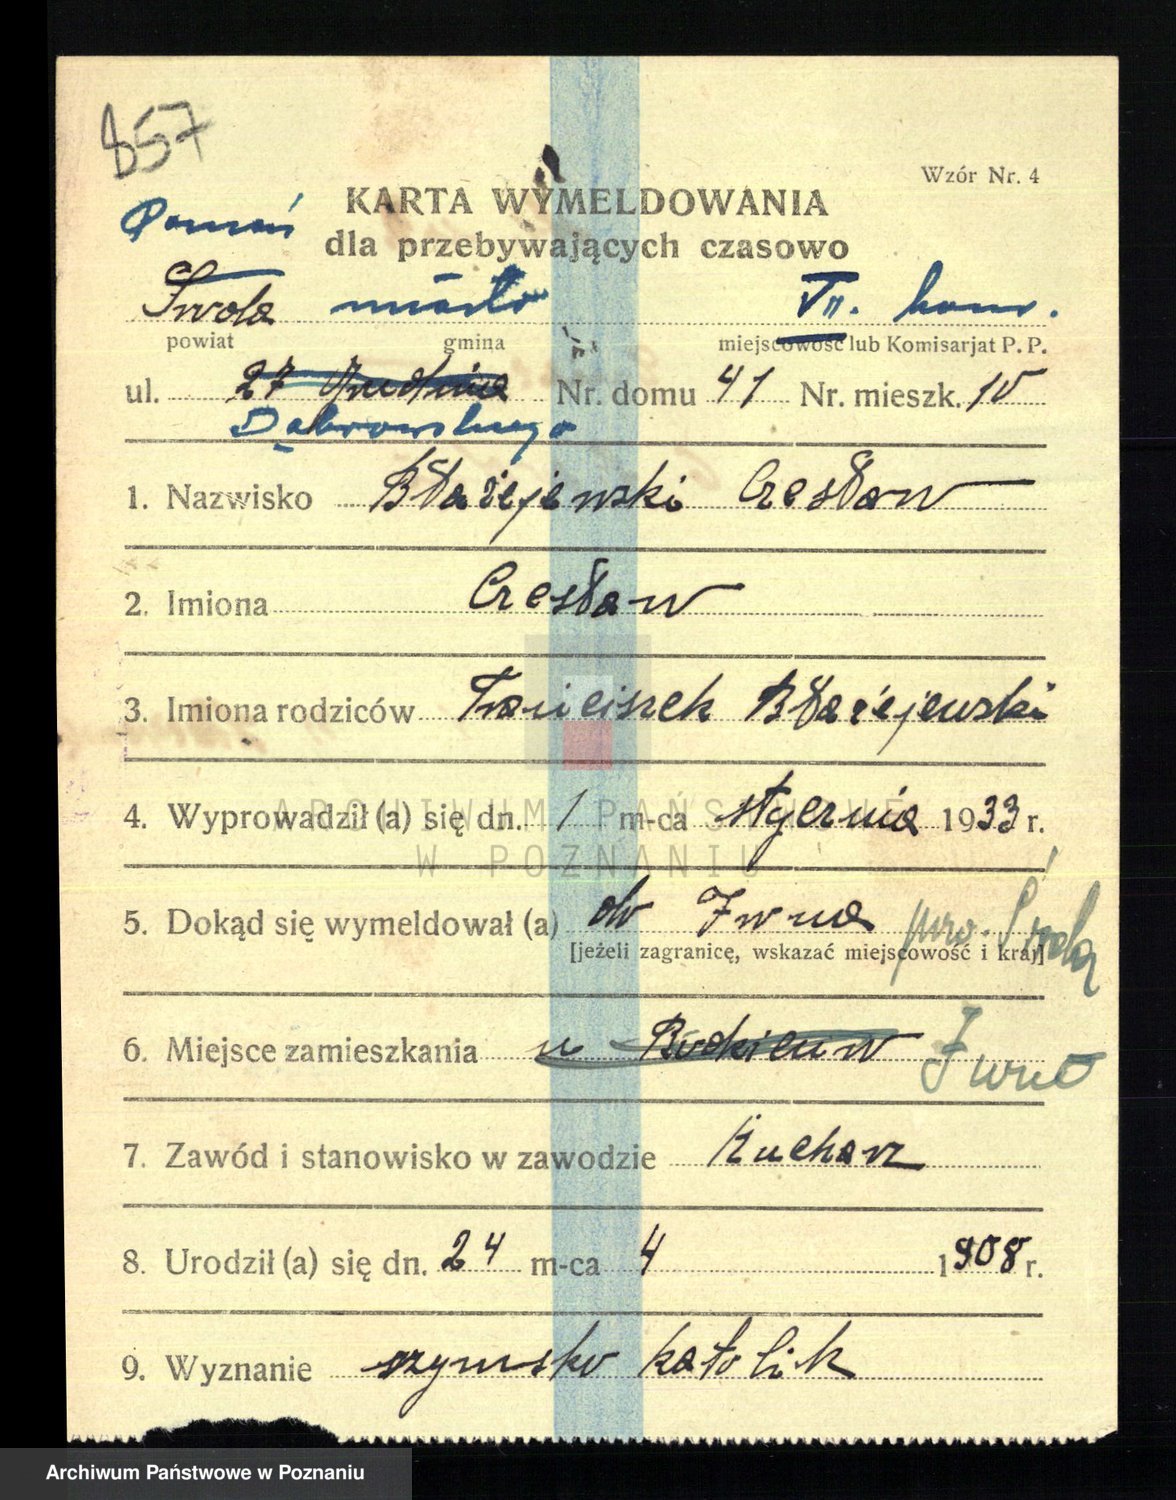 857
Wzór Nr. 4
KARTA WYMELDOWANIA
Poznań
dla przebywających czasowo
Środa miasto VII. kom.
powiat gmina miejscowość lub Komisarjat P. P.
ul. 27 Grudnia Nr. domu 41 Nr. mieszk. 10
Dąbrowskiego
1. Nazwisko Błażejewski Czesław
2. Imiona Czesław
3. Imiona rodziców Franciszek Błażejewski
ARCHIWUM PAŃSTWOWE
4. Wyprowadził (a) się dn. 1 m-ca stycznia 1933 r.
W POZNANIU
5. Dokąd się wymeldował (a) do Iwna pow. Środa
[jeżeli zagranicę, wskazać miejscowość i kraj]
6. Miejsce zamieszkania w Iwno
7. Zawód i stanowisko w zawodzie Kucharz
8. Urodził (a) się dn. 24 m-ca 4 1908 r.
9. Wyznanie rzymsko katolik
Archiwum Państwowe w Poznaniu